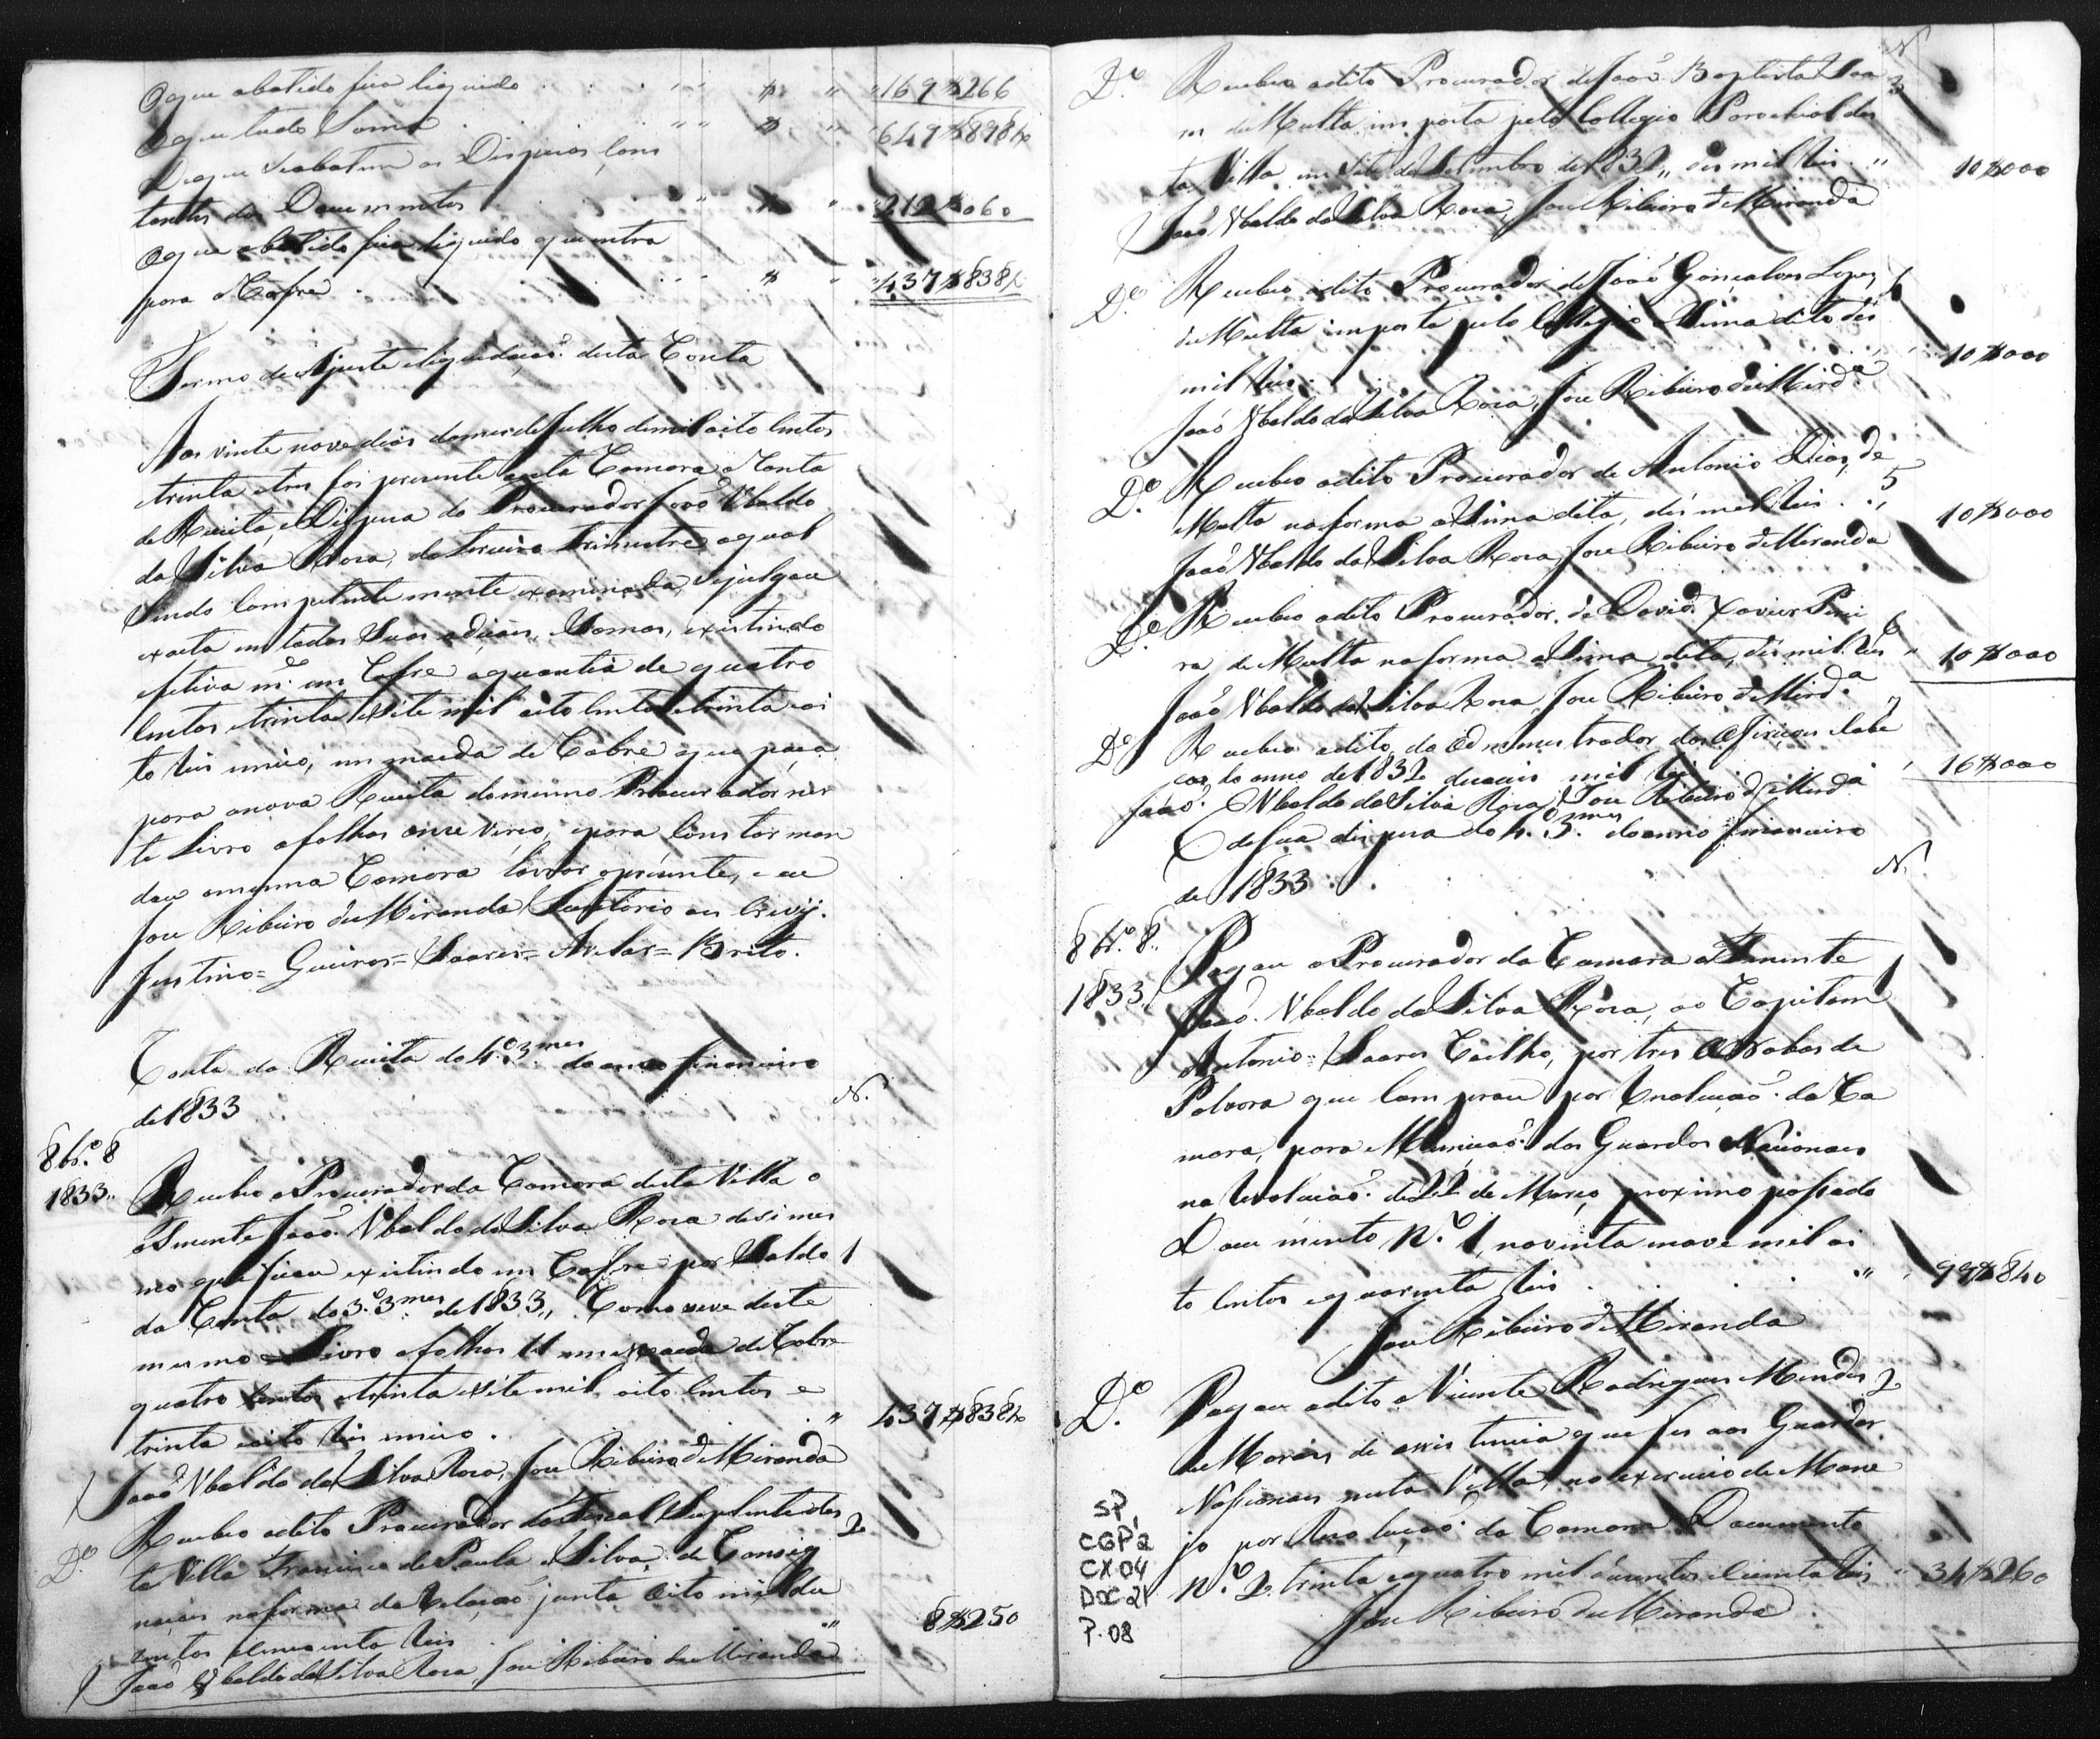 O que abatido fica liquido . . . " " $ " " 169$266
O que tudo Soma . . . " " $ " 649$898½
De que se abatem as Dispezas, cons
tantes dos Documentos . . . " $ " 212$060
O que abatido fica liquido que entra
para o Cofre . . . " $ " 437$838½
Termo de Ajuste e liquidação desta Conta
Aos vinte nove dias do mes de Julho de mil oito centos
e trinta e tres foi prezente a esta Camara a Conta
de Receita, e Dispeza do Procurador João Ubaldo
da Silva Roza, do terceiro trimestre a qual
sendo competentemente examinada, se julgou
exacta em todas Suas adições, e Somas, existindo
efetiva m.e em Cofre a quantia de quatro
centos e trinta e Sete mil oito centos e trinta e oi
to reis e meio, em moeda de Cobre que passa
para a nova Receita do mesmo Procurador nes
te Livro a folhas onze verso, e para constar man
dou a mesma Camara lavrar o prezente, e eu
Joze Ribeiro de Miranda Secretario que escrevy.
Justino = Queiros = Soares = Avelar = Brito.
Conta da Receita do 4.º 3mes do anno financeiro
de 1833
N.
8br.º 8
1833.. Recebeo o Procurador da Camara desta Villa o
Tenente João Ubaldo da Silva Roza de si mes
mo que ficou existindo em Cofre por Saldo 1
da Conta do 3.º 3mes de 1833,, Como se ve deste
mesmo Livro a folhas 11 em moeda de Cobre
quatro centos e trinta e Sete mil oito centos e
trinta e oito reis e meio . " 437$838½
João Ubaldo da Silva Roza, Joze Ribeiro de Miranda
D.º Recebeo o dito Procurador do Fiscal Suplente des 2
ta Villa Francisco de Paula e Silva, de Consig
nações na forma da Relação junta Oito mil du
zentos e cincoenta reis . " 8$250
João Ubaldo da Silva Roza Joze Ribeiro de Miranda
N
D.º Recebeo o dito Procurador de João Baptista Soa 3
res de Multa imposta pelo Collegio Parochial des
ta Villa em Sete de Setembro de 1832,, des mil reis . " 10$000
João Ubaldo da Silva Roza, Joze Ribeiro de Miranda
D.º Recebeo o dito Procurador de João Gonçalves Lopes,
de Multa imposta pelo Collegio a Sima dito des
mil reis . 10$000
João Ubaldo da Silva Roza, Joze Ribeiro de Mird.a
D.º Recebeo o dito Procurador de Antonio Dias, de 5
Multa na forma a Sima dita, des mil reis . " 10$000
João Ubaldo da Silva Roza Joze Ribeiro de Miranda
D.º Recebeo o dito Procurador, de David Xavier Perei 6
ra de Multa na forma a Sima dita, des mil reis " 10$000
João Ubaldo da Silva Roza, Joze Ribeiro de Mird.a
D.º Recebeo o dito, do Administrador das Afirições e Cabe 7
ças do anno de 1832 dezaceis mil reis " 16$000
João Ubaldo da Silva Roza, Joze Ribeiro de Mird.a
C da Sua dispeza do 4.º 3mes do anno financeiro
de 1833 . N.
8br.º 8..
1833, Pagou o Procurador da Camara o Tenente
João Ubaldo da Silva Roza, ao Capitam 1
Antonio Soares Coelho, por tres Arrobas de
Polvora que comprou por Rezolução da Ca
mara, para Munição dos Guardas Nacionaes
na Revolução de 22 de Março, proximo passado
Documento N.º 1, noventa e nove mil oi
to centos e quarenta reis . . . " 99$840
Joze Ribeiro de Miranda
D.º Pagou o dito a Vicente Rodrigues Mendes 2
de Moraes de assistencia que fes aos Guardas
Nassionaes nesta Villa no exercicio de Mane
jo por Rezolução da Camara Documento
N.º 2, trinta e quatro mil duzentos e secenta reis " 34$260
Joze Ribeiro de Miranda
SP
CGP2
CX.04
DOC 21
P. 08